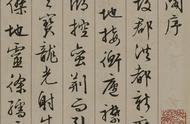 閣序
故郡洪都新
地接衡廬襟
湖控蠻荆而引
天寶龍光射牛
傑地靈徐孺